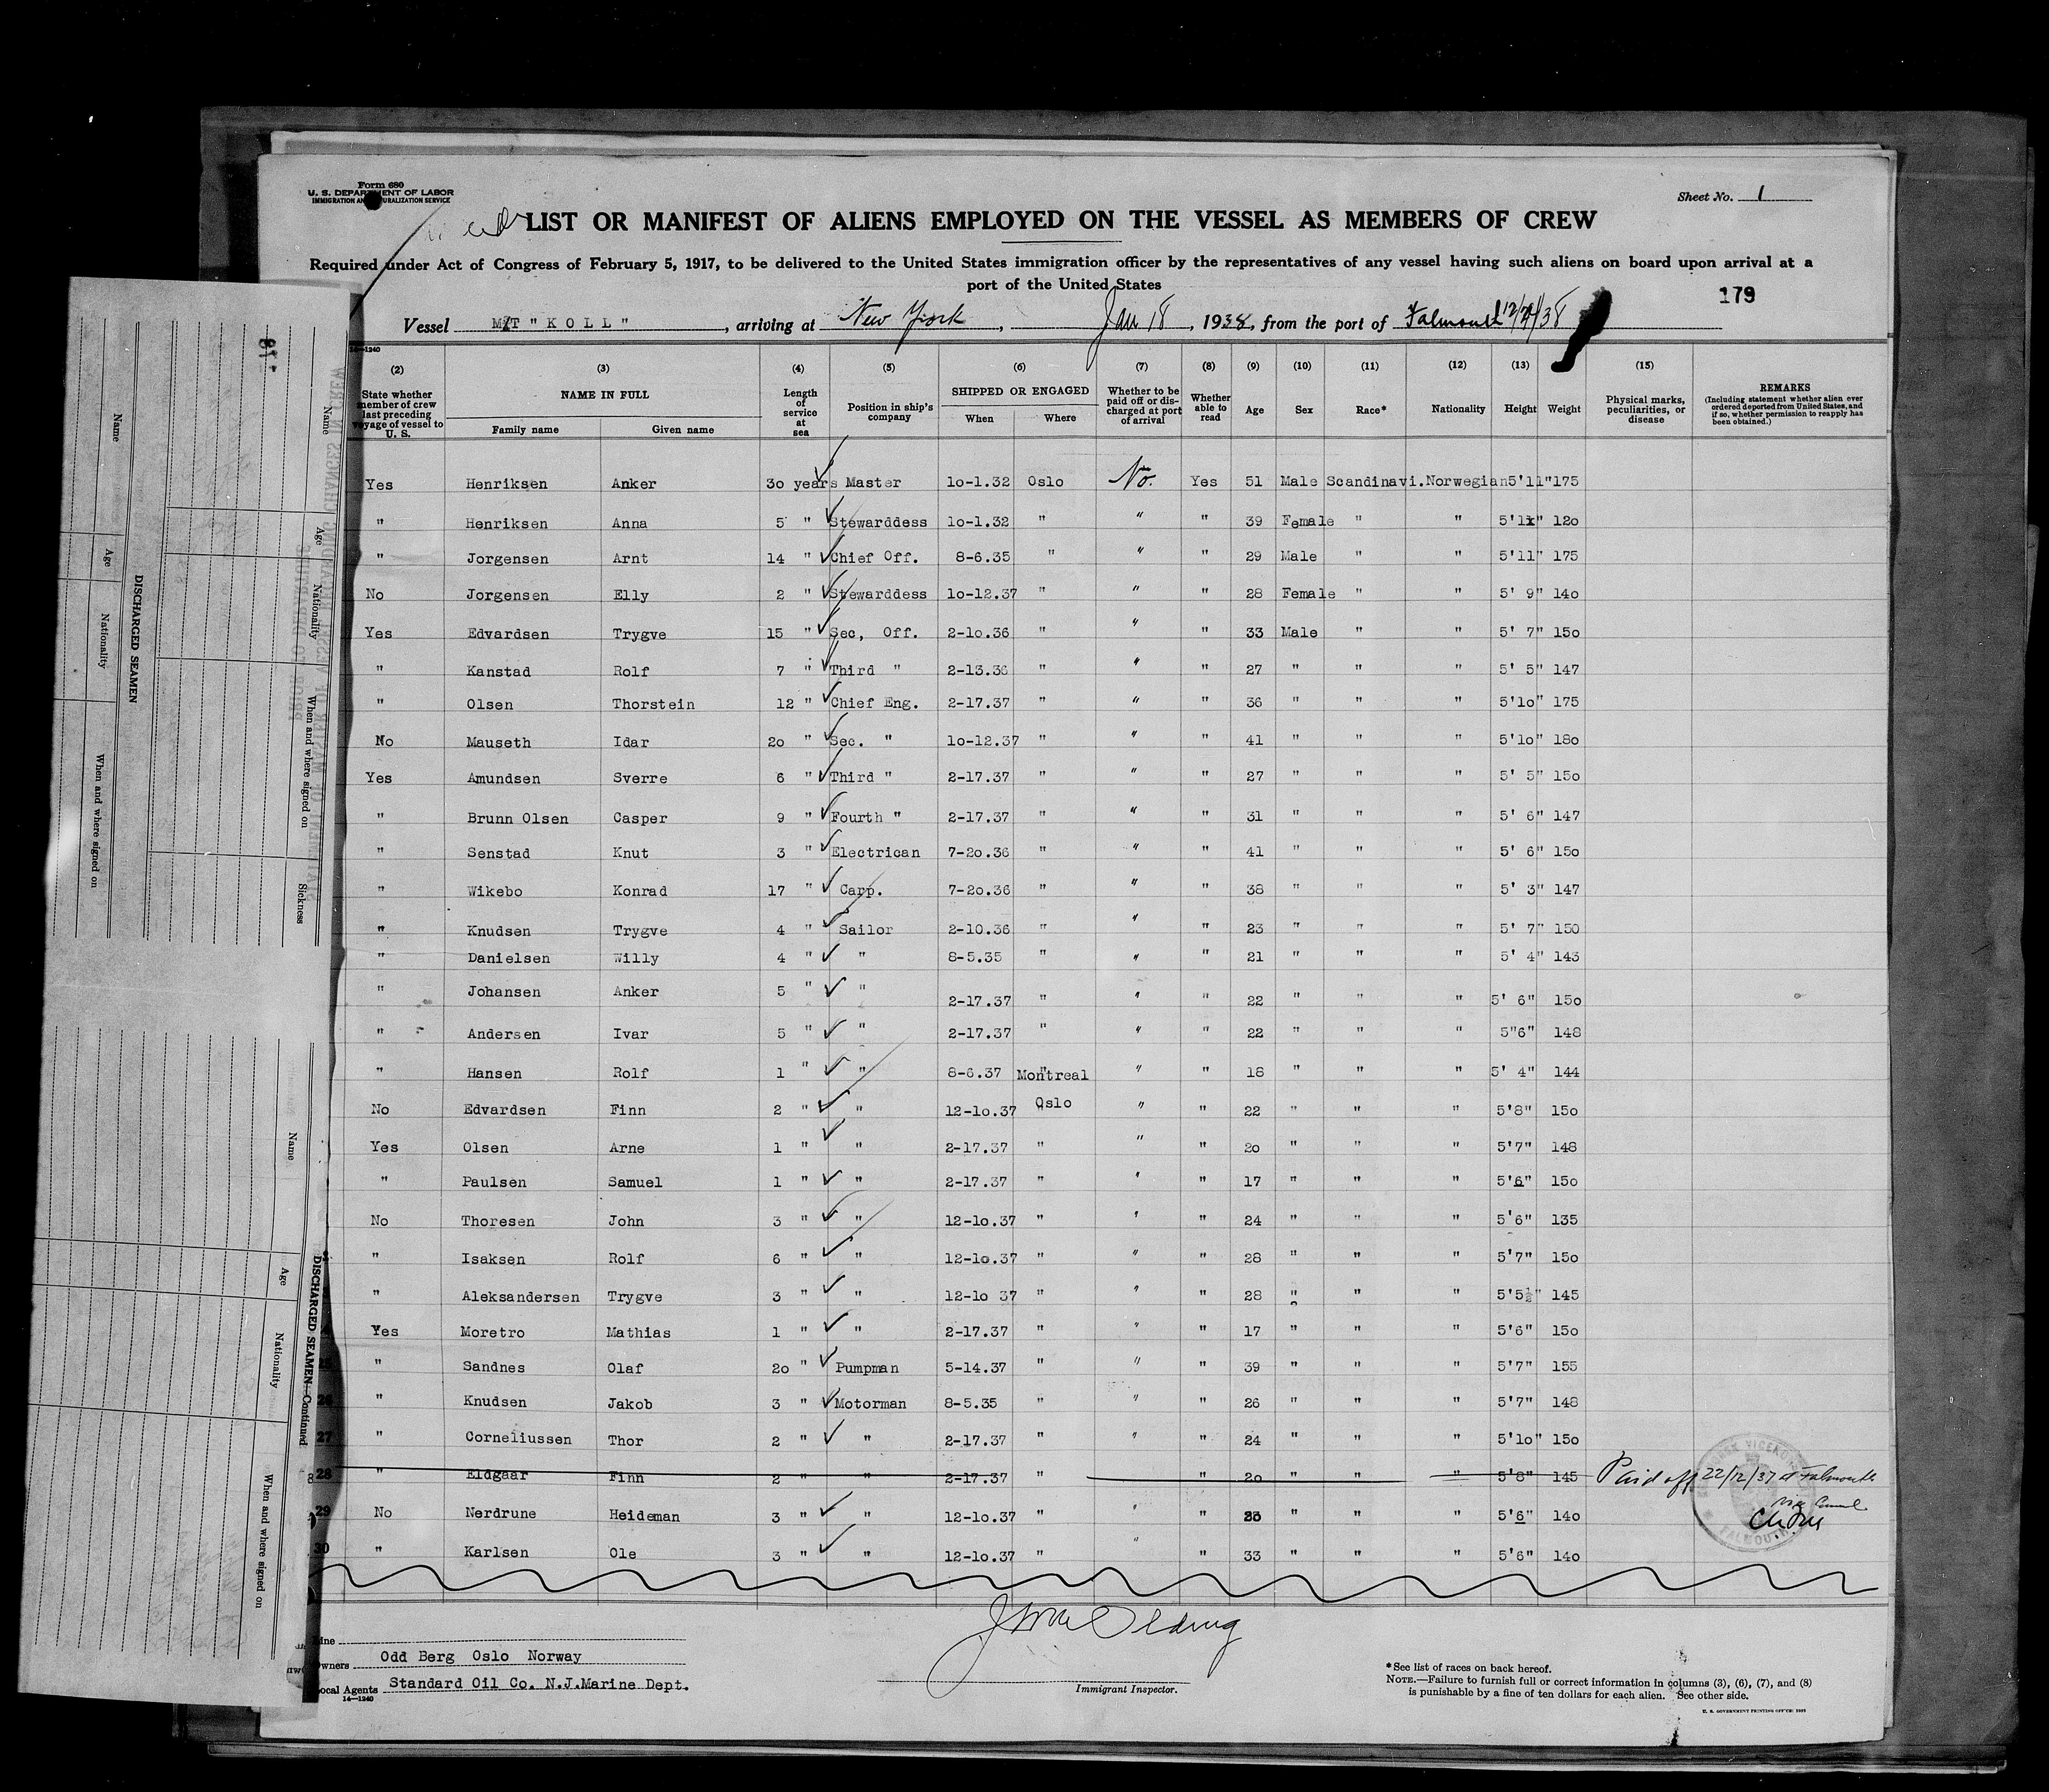 Form 680
U. S. DEPARTMENT OF LABOR
IMMIGRATION AND NATURALIZATION SERVICE
Sheet No. 1
LIST OR MANIFEST OF ALIENS EMPLOYED ON THE VESSEL AS MEMBERS OF CREW
Required under Act of Congress of February 5, 1917, to be delivered to the United States immigration officer by the representatives of any vessel having such aliens on board upon arrival at a
port of the United States
179
Vessel M/T "KOLL", arriving at New York, Jan 18, 1938, from the port of Falmouth
14—1240
(2) (3) (4) (5) (6) (7) (8) (9) (10) (11) (12) (13) (15)
State whether member of crew last preceding voyage of vessel to U. S.
NAME IN FULL
Family name Given name
Length of service at sea
Position in ship's company
SHIPPED OR ENGAGED
When Where
Whether to be paid off or discharged at port of arrival
Whether able to read
Age Sex Race* Nationality Height Weight
Physical marks, peculiarities, or disease
REMARKS
(Including statement whether alien ever ordered deported from United States, and if so, whether permission to reapply has been obtained.)
Yes Henriksen Anker 30 years Master 10-1.32 Oslo No. Yes 51 Male Scandinavi. Norwegian 5'11" 175
" Henriksen Anna 5 " Stewarddess 10-1.32 " " " 39 Female " " 5'11" 120
" Jorgensen Arnt 14 " Chief Off. 8-6.35 " " " 29 Male " " 5'11" 175
No Jorgensen Elly 2 " Stewarddess 10-12.37 " " " 28 Female " " 5' 9" 140
Yes Edvardsen Trygve 15 " Sec, Off. 2-10.36 " " " 33 Male " " 5' 7" 150
" Kanstad Rolf 7 " Third " 2-13.36 " " " 27 " " " 5' 5" 147
" Olsen Thorstein 12 " Chief Eng. 2-17.37 " " " 36 " " " 5'10" 175
No Mauseth Idar 20 " Sec. " 10-12.37 " " " 41 " " " 5'10" 180
Yes Amundsen Sverre 6 " Third " 2-17.37 " " " 27 " " " 5' 5" 150
" Brunn Olsen Casper 9 " Fourth " 2-17.37 " " " 31 " " " 5' 6" 147
" Senstad Knut 3 " Electrican 7-20.36 " " " 41 " " " 5' 6" 150
" Wikebo Konrad 17 " Carp. 7-20.36 " " " 38 " " " 5' 3" 147
" Knudsen Trygve 4 " Sailor 2-10.36 " " " 23 " " " 5' 7" 150
" Danielsen Willy 4 " " 8-5.35 " " " 21 " " " 5' 4" 143
" Johansen Anker 5 " " 2-17.37 " " " 22 " " " 5' 6" 150
" Andersen Ivar 5 " " 2-17.37 " " " 22 " " " 5"6" 148
" Hansen Rolf 1 " " 8-6.37 Montreal " " 18 " " " 5' 4" 144
No Edvardsen Finn 2 " " 12-10.37 Oslo " " 22 " " " 5'8" 150
Yes Olsen Arne 1 " " 2-17.37 " " " 20 " " " 5'7" 148
" Paulsen Samuel 1 " " 2-17.37 " " " 17 " " " 5'6" 150
No Thoresen John 3 " " 12-10.37 " " " 24 " " " 5'6" 135
" Isaksen Rolf 6 " " 12-10.37 " " " 28 " " " 5'7" 150
" Aleksandersen Trygve 3 " " 12-10 37 " " " 28 " " " 5'5½" 145
Yes Moretro Mathias 1 " " 2-17.37 " " " 17 " " " 5'6" 150
" Sandnes Olaf 20 " Pumpman 5-14.37 " " " 39 " " " 5'7" 155
26 " Knudsen Jakob 3 " Motorman 8-5.35 " " " 26 " " " 5'7" 148
27 " Corneliussen Thor 2 " " 2-17.37 " " " 24 " " " 5'10" 150
28 " Eldgaar Finn 2 " " 2-17.37 " " 20 " " " 5'8" 145 Paid off 22/12/37 at Falmouth
29 No Nerdrune Heideman 3 " " 12-10.37 " " " " " " 5'6" 140
30 " Karlsen Ole 3 " " 12-10.37 " " " 33 " " " 5'6" 140
FALMOUTH
Line
Owners Odd Berg Oslo Norway
Local Agents Standard Oil Co. N.J.Marine Dept.
14—1240
Immigrant Inspector.
*See list of races on back hereof.
NOTE.—Failure to furnish full or correct information in columns (3), (6), (7), and (8)
is punishable by a fine of ten dollars for each alien. See other side.
U. S. GOVERNMENT PRINTING OFFICE
DISCHARGED SEAMEN
Name Age Nationality When and where signed on
Name Age Nationality When and where signed on Sickness
DISCHARGED SEAMEN—Continued
Name Age Nationality When and where signed on